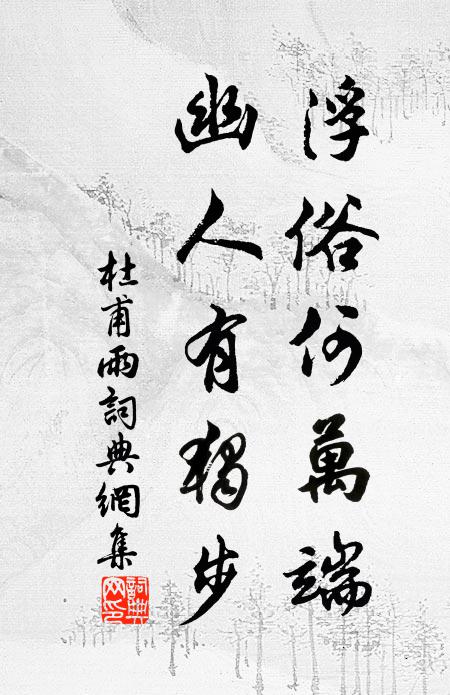 浮俗何萬端
幽人有獨步
杜甫雨詞典網集
詞典
网印